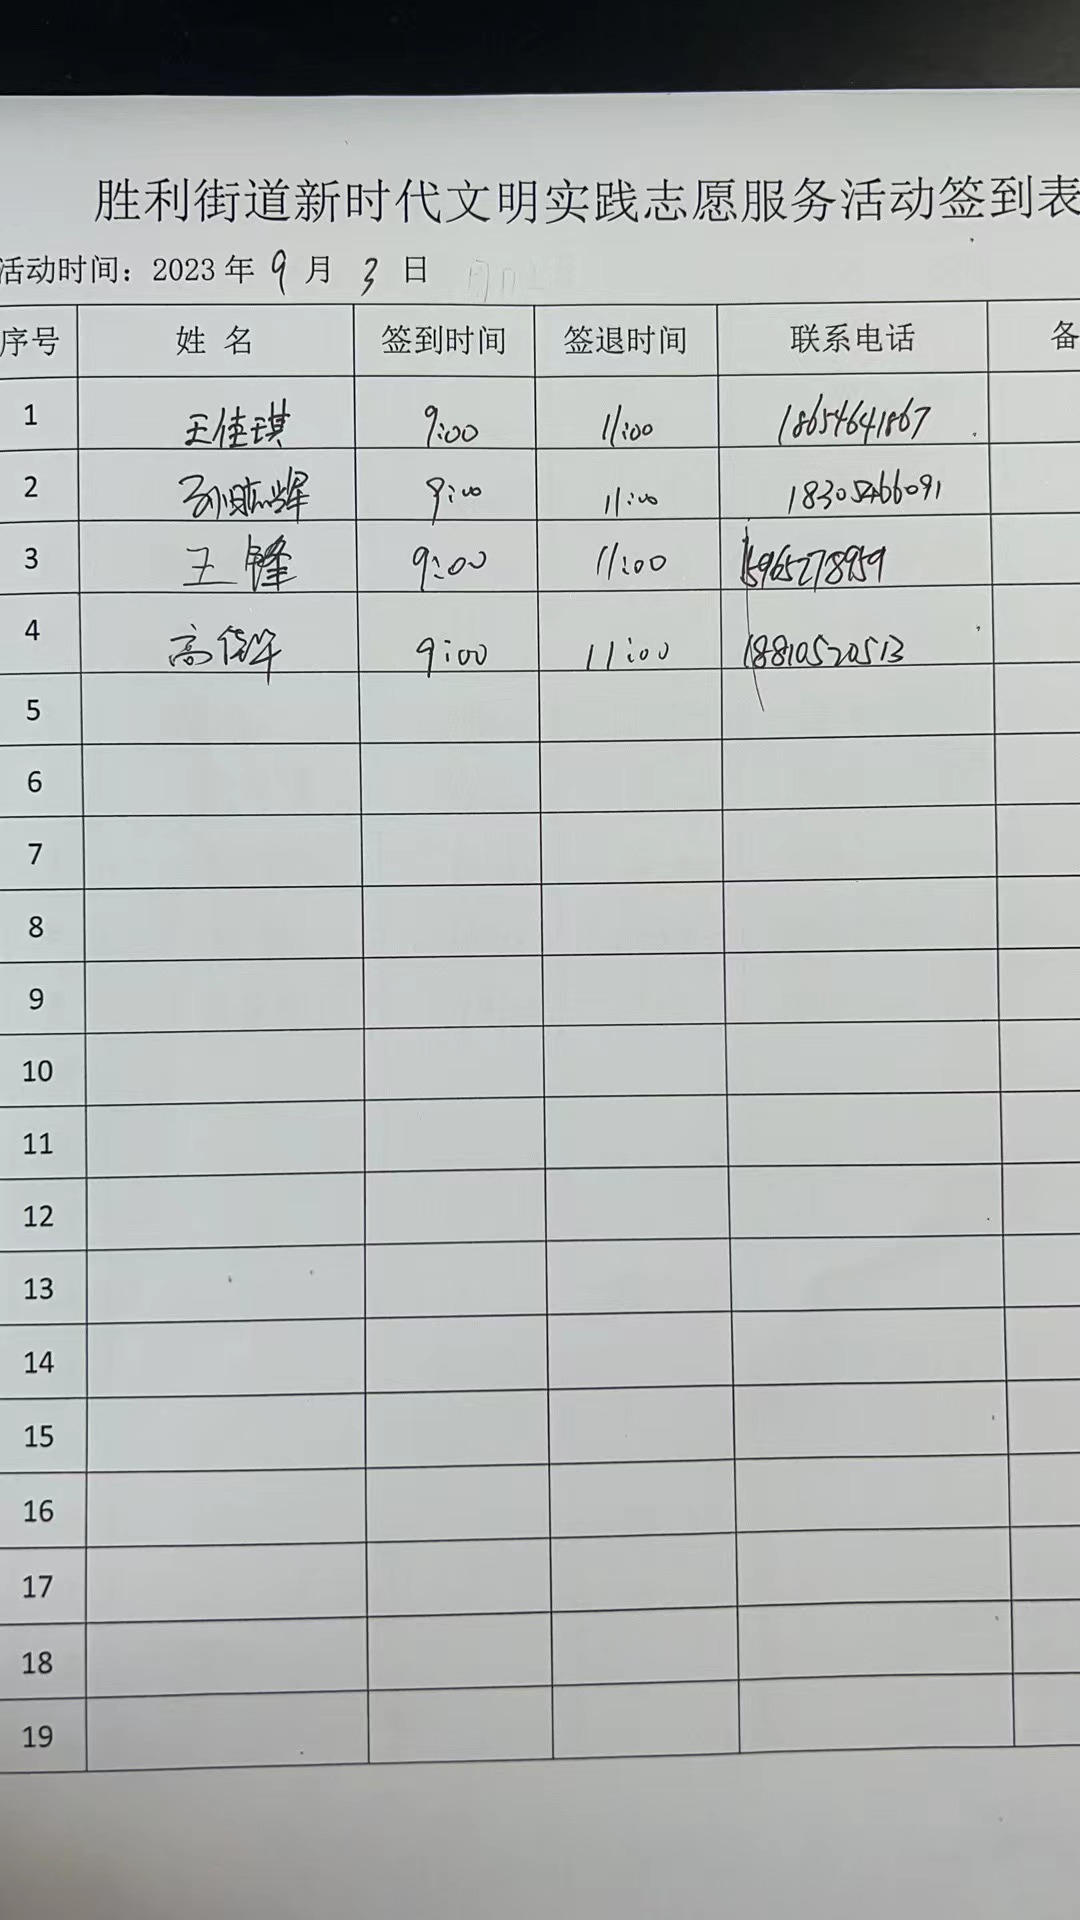 胜利街道新时代文明实践志愿服务活动签到表
活动时间：2023 年 9 月 3 日
序号 姓 名 签到时间 签退时间 联系电话 备
1 王佳琪 9:00 11:00 18654641867
2 9:00 11:00 18305466091
3 王锋 9:00 11:00 15965278959
4 高 9:00 11:00 18810520513
5
6
7
8
9
10
11
12
13
14
15
16
17
18
19